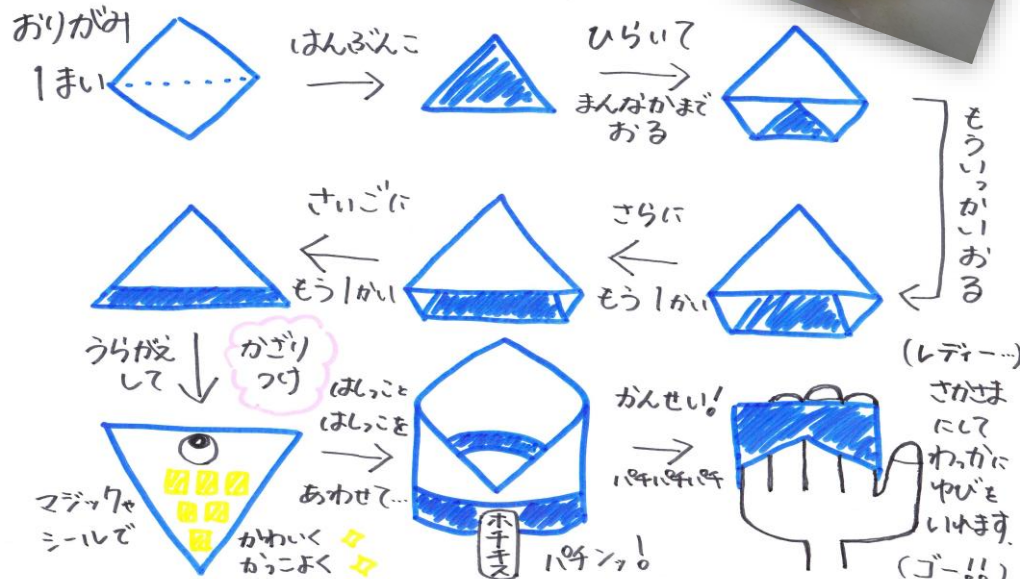 おりがみ
1まい
はんぶんこ
ひらいて
まんなかまで
おる
もういっかいおる
さらに
もう1かい
さいごに
もう1かい
うらがえ
して
かざり
つけ
マジックや
シールで
かわいく
かっこよく
はしっこと
はしっこを
あわせて…
ホチキス
パチンッ!
かんせい!
パチパチパチ
(レディー…)
さかさま
にして
わっかに
ゆびを
いれます.
(ゴー!!)